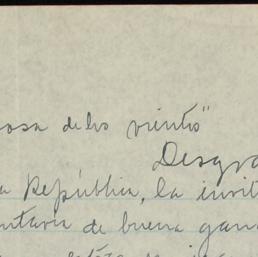 rosa de los vientos"
Desgra
a República, la invit
ntaría de buena gana